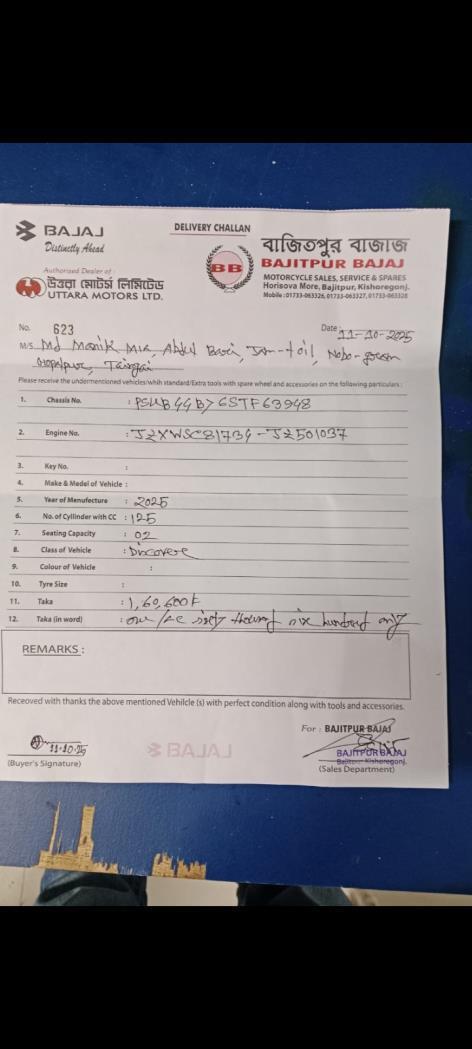 BAJAJ
Distinctly Ahead
DELIVERY CHALLAN
Authorised Dealer of :
উত্তরা মোটর্স লিমিটেড
UTTARA MOTORS LTD.
BB
বাজিতপুর বাজাজ
BAJITPUR BAJAJ
MOTORCYCLE SALES, SERVICE & SPARES
Horisova More, Bajitpur, Kishoregonj.
Mobile : 01733-063326, 01733-063327, 01733-063328
No. 623
Date : 11-10-2025
M/S. Md Manik Mia Abdul Basi, Jam-toil, Nobo-gram
Gopalpur, Tangail
Please receive the undermentioned vehicles/whih standard/Extra tools with spare wheel and accessories on the following particulars :
1. Chassis No. : PSUB44B76STF63948
2. Engine No. : JZXWSC81734-JZ501037
3. Key No. :
4. Make & Medel of Vehicle :
5. Year of Menufecture : 2025
6. No. of Cyllinder with CC : 125
7. Seating Capacity : 02
8. Class of Vehicle : Discovere
9. Colour of Vehicle :
10. Tyre Size :
11. Taka : 1,60,600/-
12. Taka (in word) : one lac sixty thousand six hundred only
REMARKS :
Receoved with thanks the above mentioned Vehilcle (s) with perfect condition along with tools and accessories.
11-10-25
(Buyer's Signature)
BAJAJ
For : BAJITPUR BAJAJ
BAJITPUR BAJAJ
Bajitpur Kishoregonj.
(Sales Department)